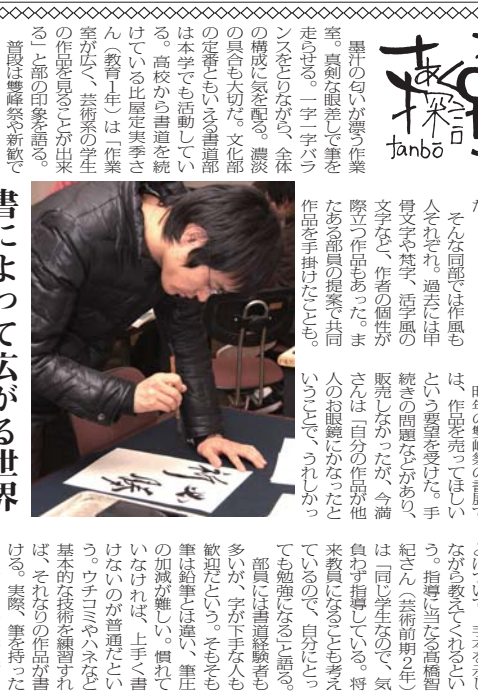 探訪
tanbō
墨汁の匂いが漂う作業
室。真剣な眼差しで筆を
走らせる。一字一字バラ
ンスをとりながら、全体
の構成に気を配る。濃淡
の具合も大切だ。文化部
の定番ともいえる書道部
は本学でも活動してい
る。高校から書道を続
けている比屋定実季さ
ん（教育１年）は「作業
室が広く、芸術系の学生
の作品を見ることが出来
る」と部の印象を語る。
普段は雙峰祭や新歓で
書によって広がる世界
た。
そんな同部では作風も
人それぞれ。過去には甲
骨文字や梵字、活字風の
文字など、作者の個性が
際立つ作品もあった。ま
たある部員の提案で共同
作品を手掛けたことも。
昨年の雙峰祭の書展で
は、作品を売ってほしい
という要望を受けた。手
続きの問題などがあり、
販売しなかったが、今満
さんは「自分の作品が他
人のお眼鏡にかなったと
いうことで、うれしかっ
ながら教えてくれるとい
う。指導に当たる高橋智
紀さん（芸術前期２年）
は「同じ学生なので、気
負わず指導している。将
来教員になることも考え
ているので、自分にとっ
ても勉強になる」と語る。
部員には書道経験者も
多いが、字が下手な人も
歓迎だという。そもそも
筆は鉛筆とは違い、筆圧
の加減が難しい。慣れて
いなければ、上手く書
けないのが普通だとい
う。ウチコミやハネなど
基本的な技術を練習すれ
ば、それなりの作品が書
ける。実際、筆を持った